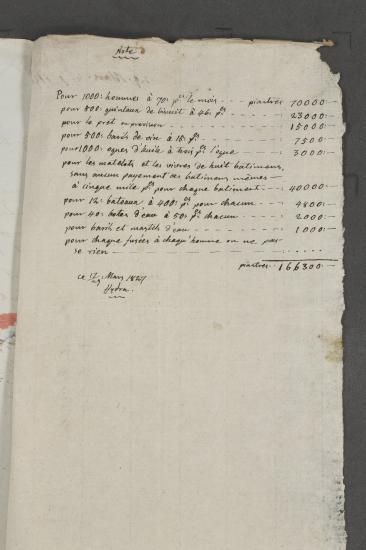 Note
Pour 1000: hommes à 70: ps. le mois - piastres 70000:—
pour 500: quintaux de biscuit à 46: ps. - - - - 23000:—
pour le prêt en provision - - - - - 15000:—
pour 500: barils de vin à 15: ps. - - - - 7500:—
pour 1000: oques d'huile à trois ps. l'oque - - 3000:—
pour les matelots et les vivres de huit batimens,
sans aucun payement des batimens mêmes—
à cinque mile ps. pour chaque batiment - - 40000:—
pour 12: bateaux, à 400: ps. pour chacun - - 4800:—
pour 40: botes d'eau à 50: ps. chacun - - 2000:—
pour barils et d'eau - - - - 1000:—
pour chaque fusées à chaqu'homme on ne pas-
se rien - - - - - - - - . . . . .
piastres: 166300:—
ce 17/29 Mars 1827
Hydra.